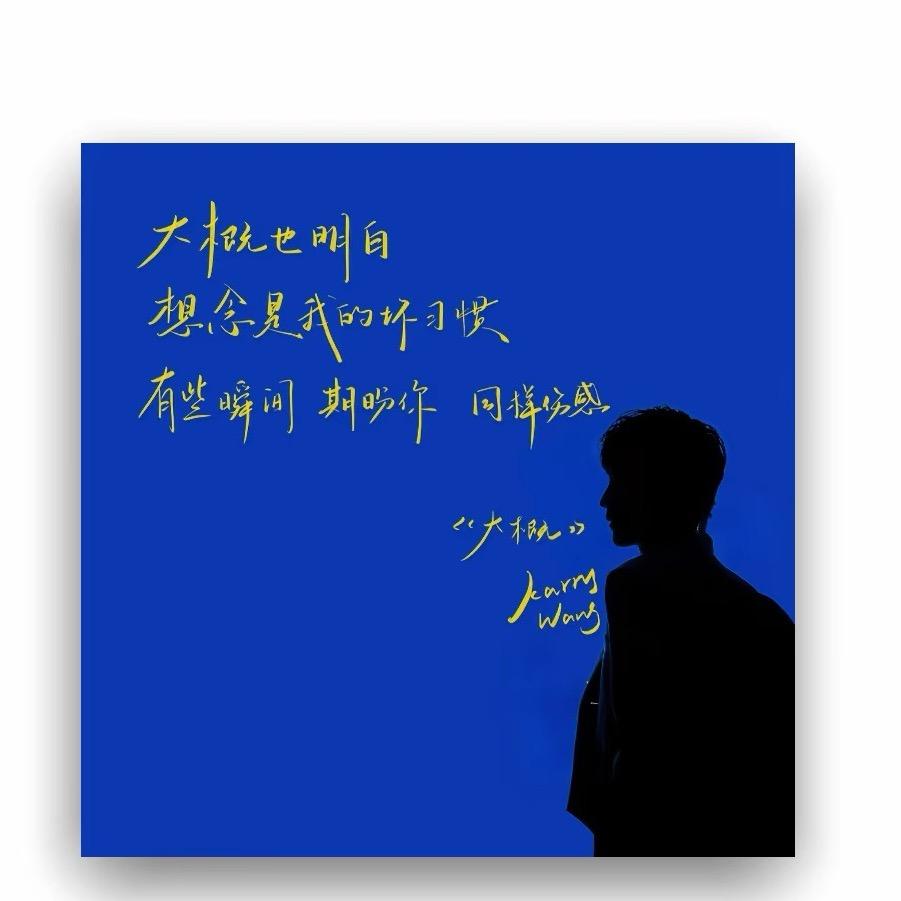 大概也明白
想念是我的坏习惯
有些瞬间 期盼你 同样伤感
《大概》
Karry
Wang